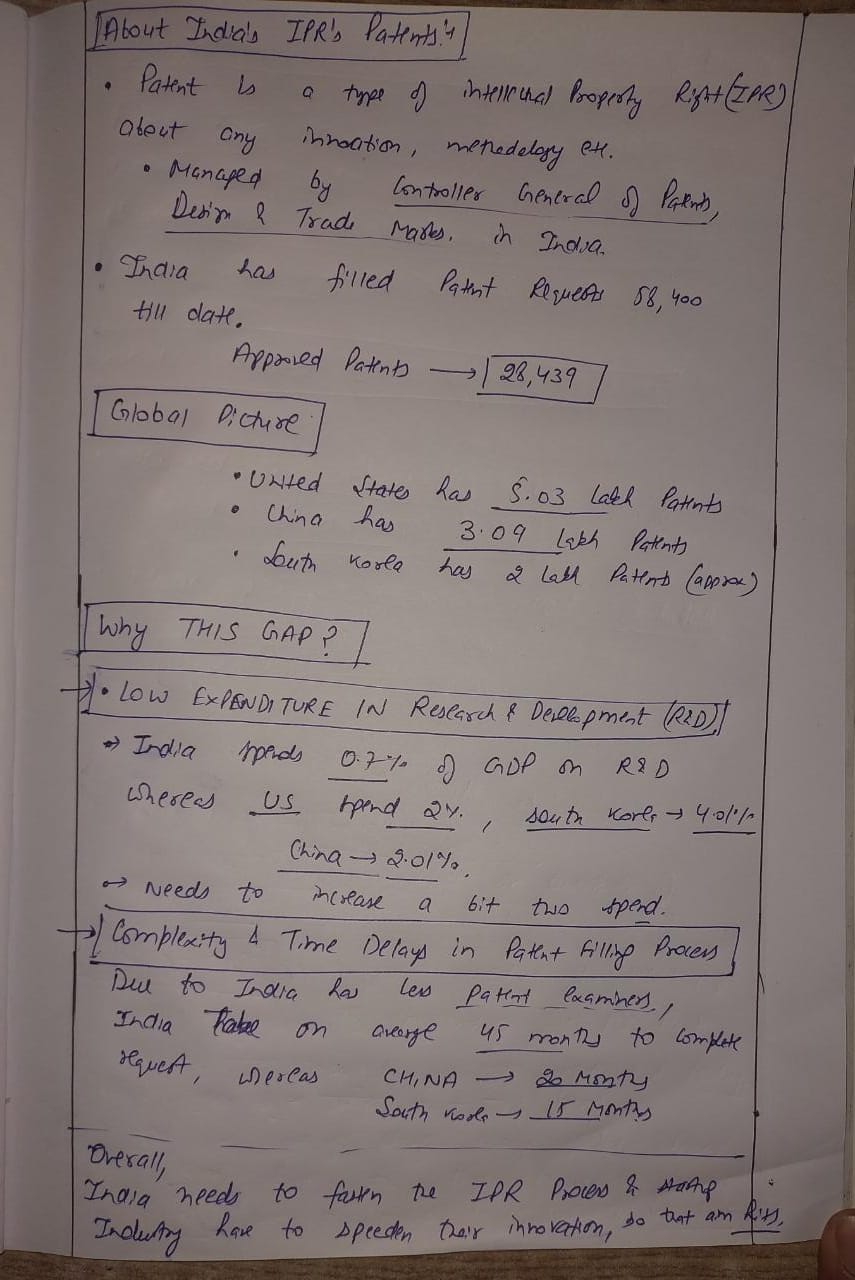 About India's IPR's Patents:
• Patent is a type of intellectual Property Right (IPR)
about any innovation, methedology etc.
• Managed by Controller General of Patents,
Design & Trade Marks. in India.
• India has filled Patent Requests 58,400
till date.
Approved Patents → 28,439
Global Picture
• United States has 5.03 lakh Patents
• China has 3.09 lakh Patents
• South Korea has 2 lakh Patents (approx)
Why THIS GAP?
→ • LOW EXPENDITURE IN Research & Development (R&D)
⇒ India spends 0.7% of GDP on R&D
whereas US spend 2%, south Korea → 4.01%
China → 2.01%.
⇒ Needs to increase a bit two spend.
→ Complexity & Time Delays in Patent filling Process
Due to India has less patent examiners,
India on average 45 months to complete
request, whereas CHINA → 20 Months
South Korea → 15 Months
Overall,
India needs to fasten the IPR Process & startup
Industry have to speeden their innovation, so that am